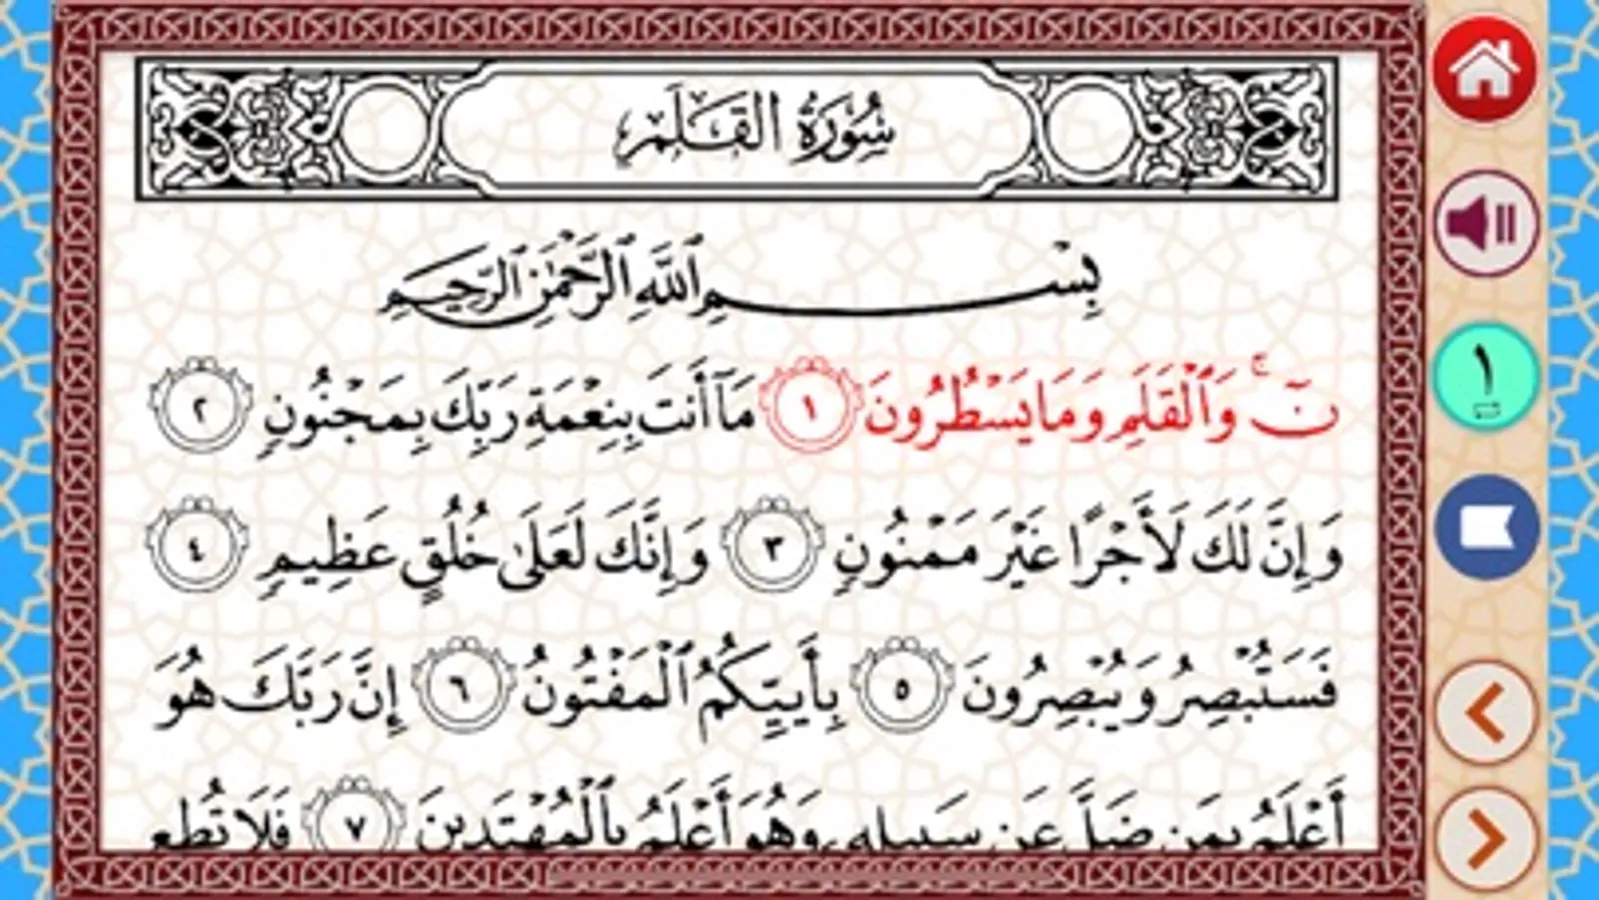 سُورَةُ القَلَمِ
بِسْمِ ٱللَّهِ ٱلرَّحْمَٰنِ ٱلرَّحِيمِ
نٓ ۚ وَٱلْقَلَمِ وَمَا يَسْطُرُونَ ١ مَآ أَنتَ بِنِعْمَةِ رَبِّكَ بِمَجْنُونٍ ٢
وَإِنَّ لَكَ لَأَجْرًا غَيْرَ مَمْنُونٍ ٣ وَإِنَّكَ لَعَلَىٰ خُلُقٍ عَظِيمٍ ٤
فَسَتُبْصِرُ وَيُبْصِرُونَ ٥ بِأَييِّكُمُ ٱلْمَفْتُونُ ٦ إِنَّ رَبَّكَ هُوَ
أَعْلَمُ بِمَن ضَلَّ عَن سَبِيلِهِۦ وَهُوَ أَعْلَمُ بِٱلْمُهْتَدِينَ ٧ فَلَا تُطِعِ
١